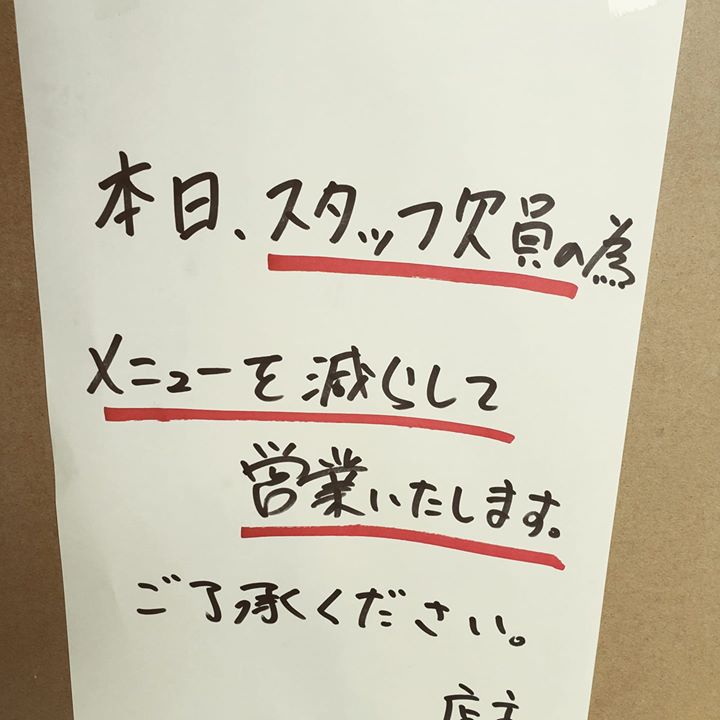 本日、スタッフ欠員の為
メニューを減らして
営業いたします。
ご了承ください。
店主